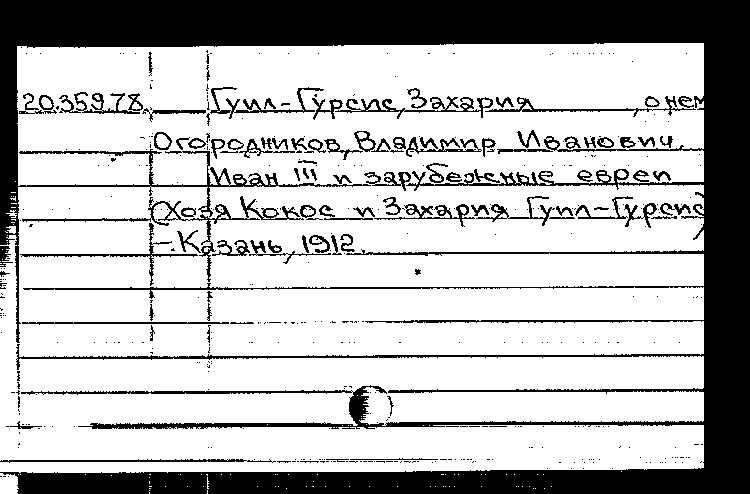 20.359.78. Гуил-Гурсис, Захария , о нем
Огородников, Владимир Иванович.
Иван III и зарубежные евреи
(Хозя Кокос и Захария Гуил-Гурсис)
-. Казань, 1912.